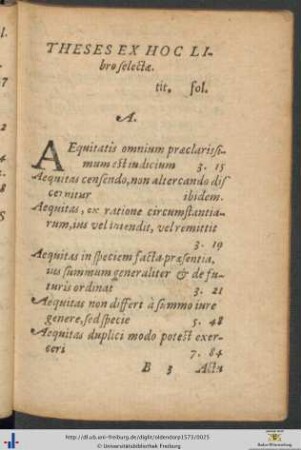 THESES EX HOC LI-
bro selectæ.
tit. fol.
A.
AEquitatis omnium præclarissi-
mum est iudicium 3. 15
Aequitas censendo, non altercando dis
cernitur ibidem.
Aequitas, ex ratione circumstantia-
rum, ius vel intendit, vel remittit
3. 19
Aequitas in speciem facta præsentia,
ius summum generaliter & de fu-
turis ordinat 3. 21
Aequitas non differt à summo iure
genere, sed specie 5. 48
Aequitas duplici modo potest exer-
ceri 7. 84
B 3 Acta
http://dl.ub.uni-freiburg.de/diglit/oldendorp1573/0025
© Universitätsbibliothek Freiburg